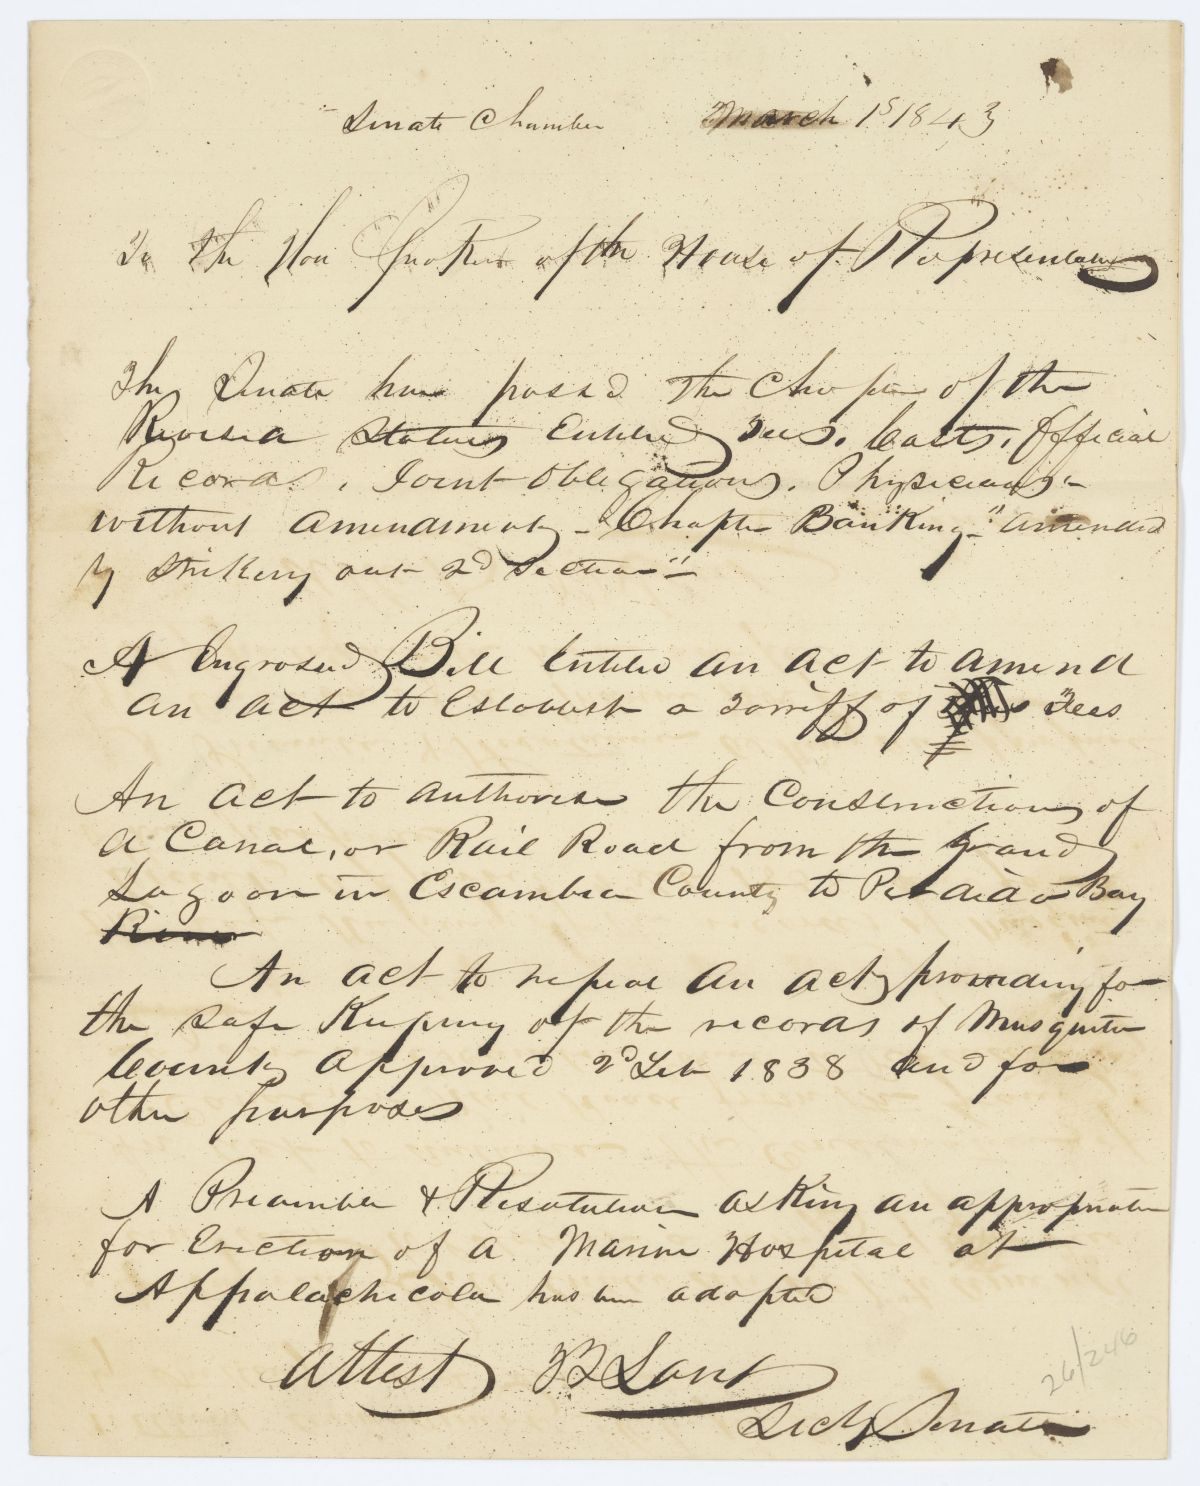 Senate Chamber March 1st 1843
To the Hon Speaker of the House of Representatives
The Senate have passed the Chapter of the
Revised Statutes Entitled Fees. Costs. Official
Records. Joint Obligations. Physicians
without amendment - "Chapter Banking" amended
by striking out 2d Section" -
A Engrossed Bill Entitled an act to amend
an act to Establish a Tarriff of Fees
An act to authorise the Construction of
a Canal, or Rail Road from the Grand
Lagoon in Escambia County to Perdido Bay
River
An act to repeal an act providing for
the safe Keeping of the records of Musquito
County approved 2d Feb 1838 and for
other purposes
A Preamble & Resolution asking an appropriation
for Erection of a Marine Hospital at
Appalachicola has been adopted
Attest
Secty Senate
26/246